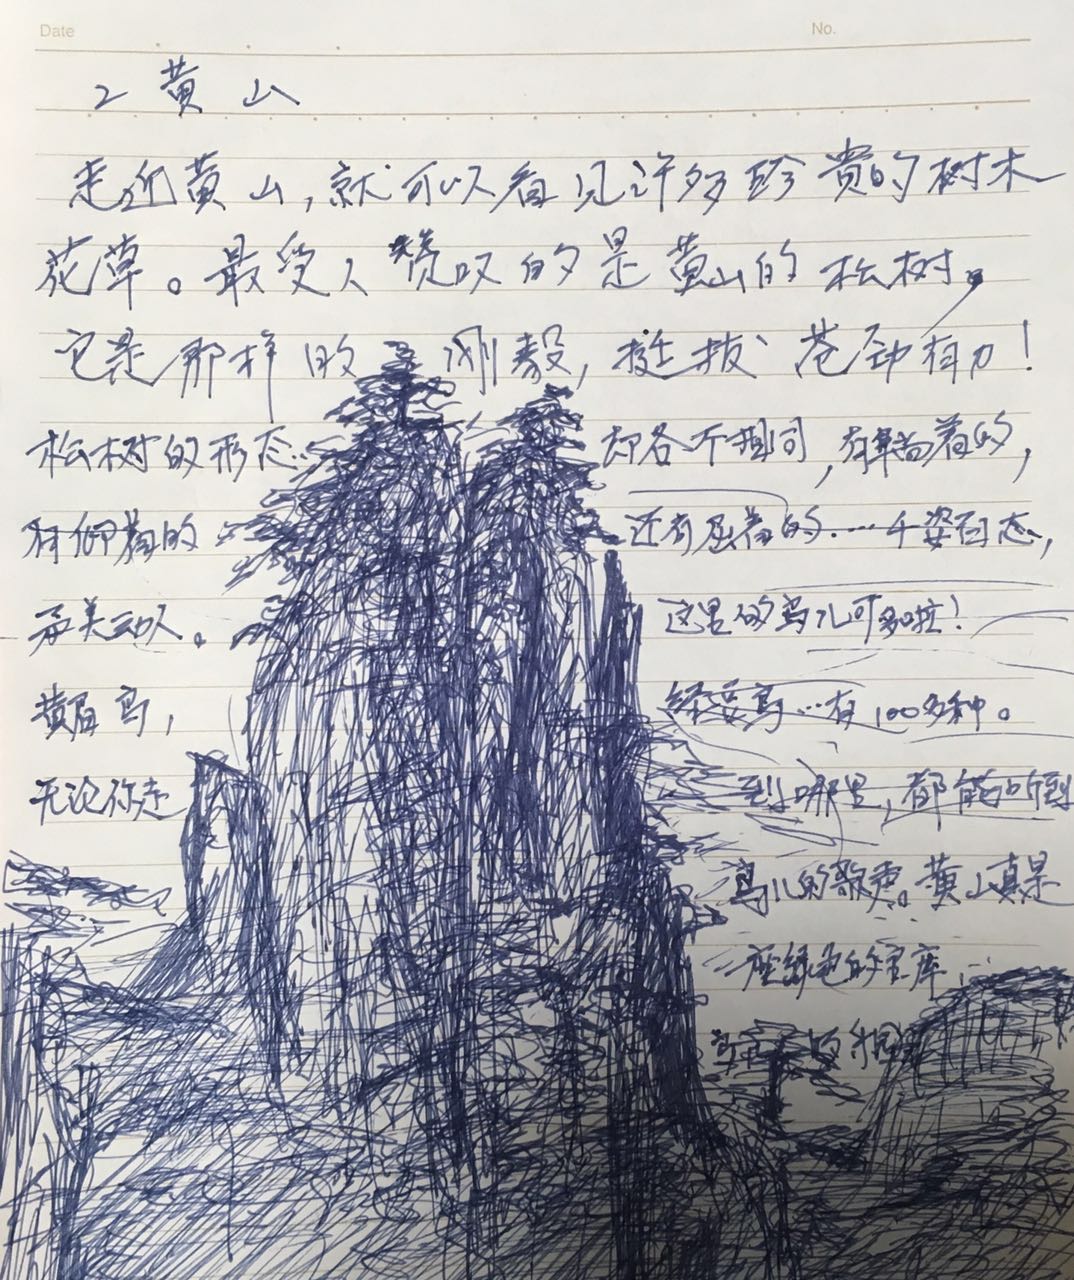 Date No.
2 黄山
走近黄山,就可以看见许多珍贵的树木
花草。最受人赞叹的是黄山的松树,
它是那样的刚毅,挺拔、苍劲有力!
松树的形态 却各不相同,有耷着的,
有仰着的 还有屈着的……千姿百态,
动人。 这里的鸟儿可多啦!
黄眉鸟, 鸟…有100多种。
无论你走 到哪里,都能听到
鸟儿的歌声。黄山真是
一座绿色的宝库